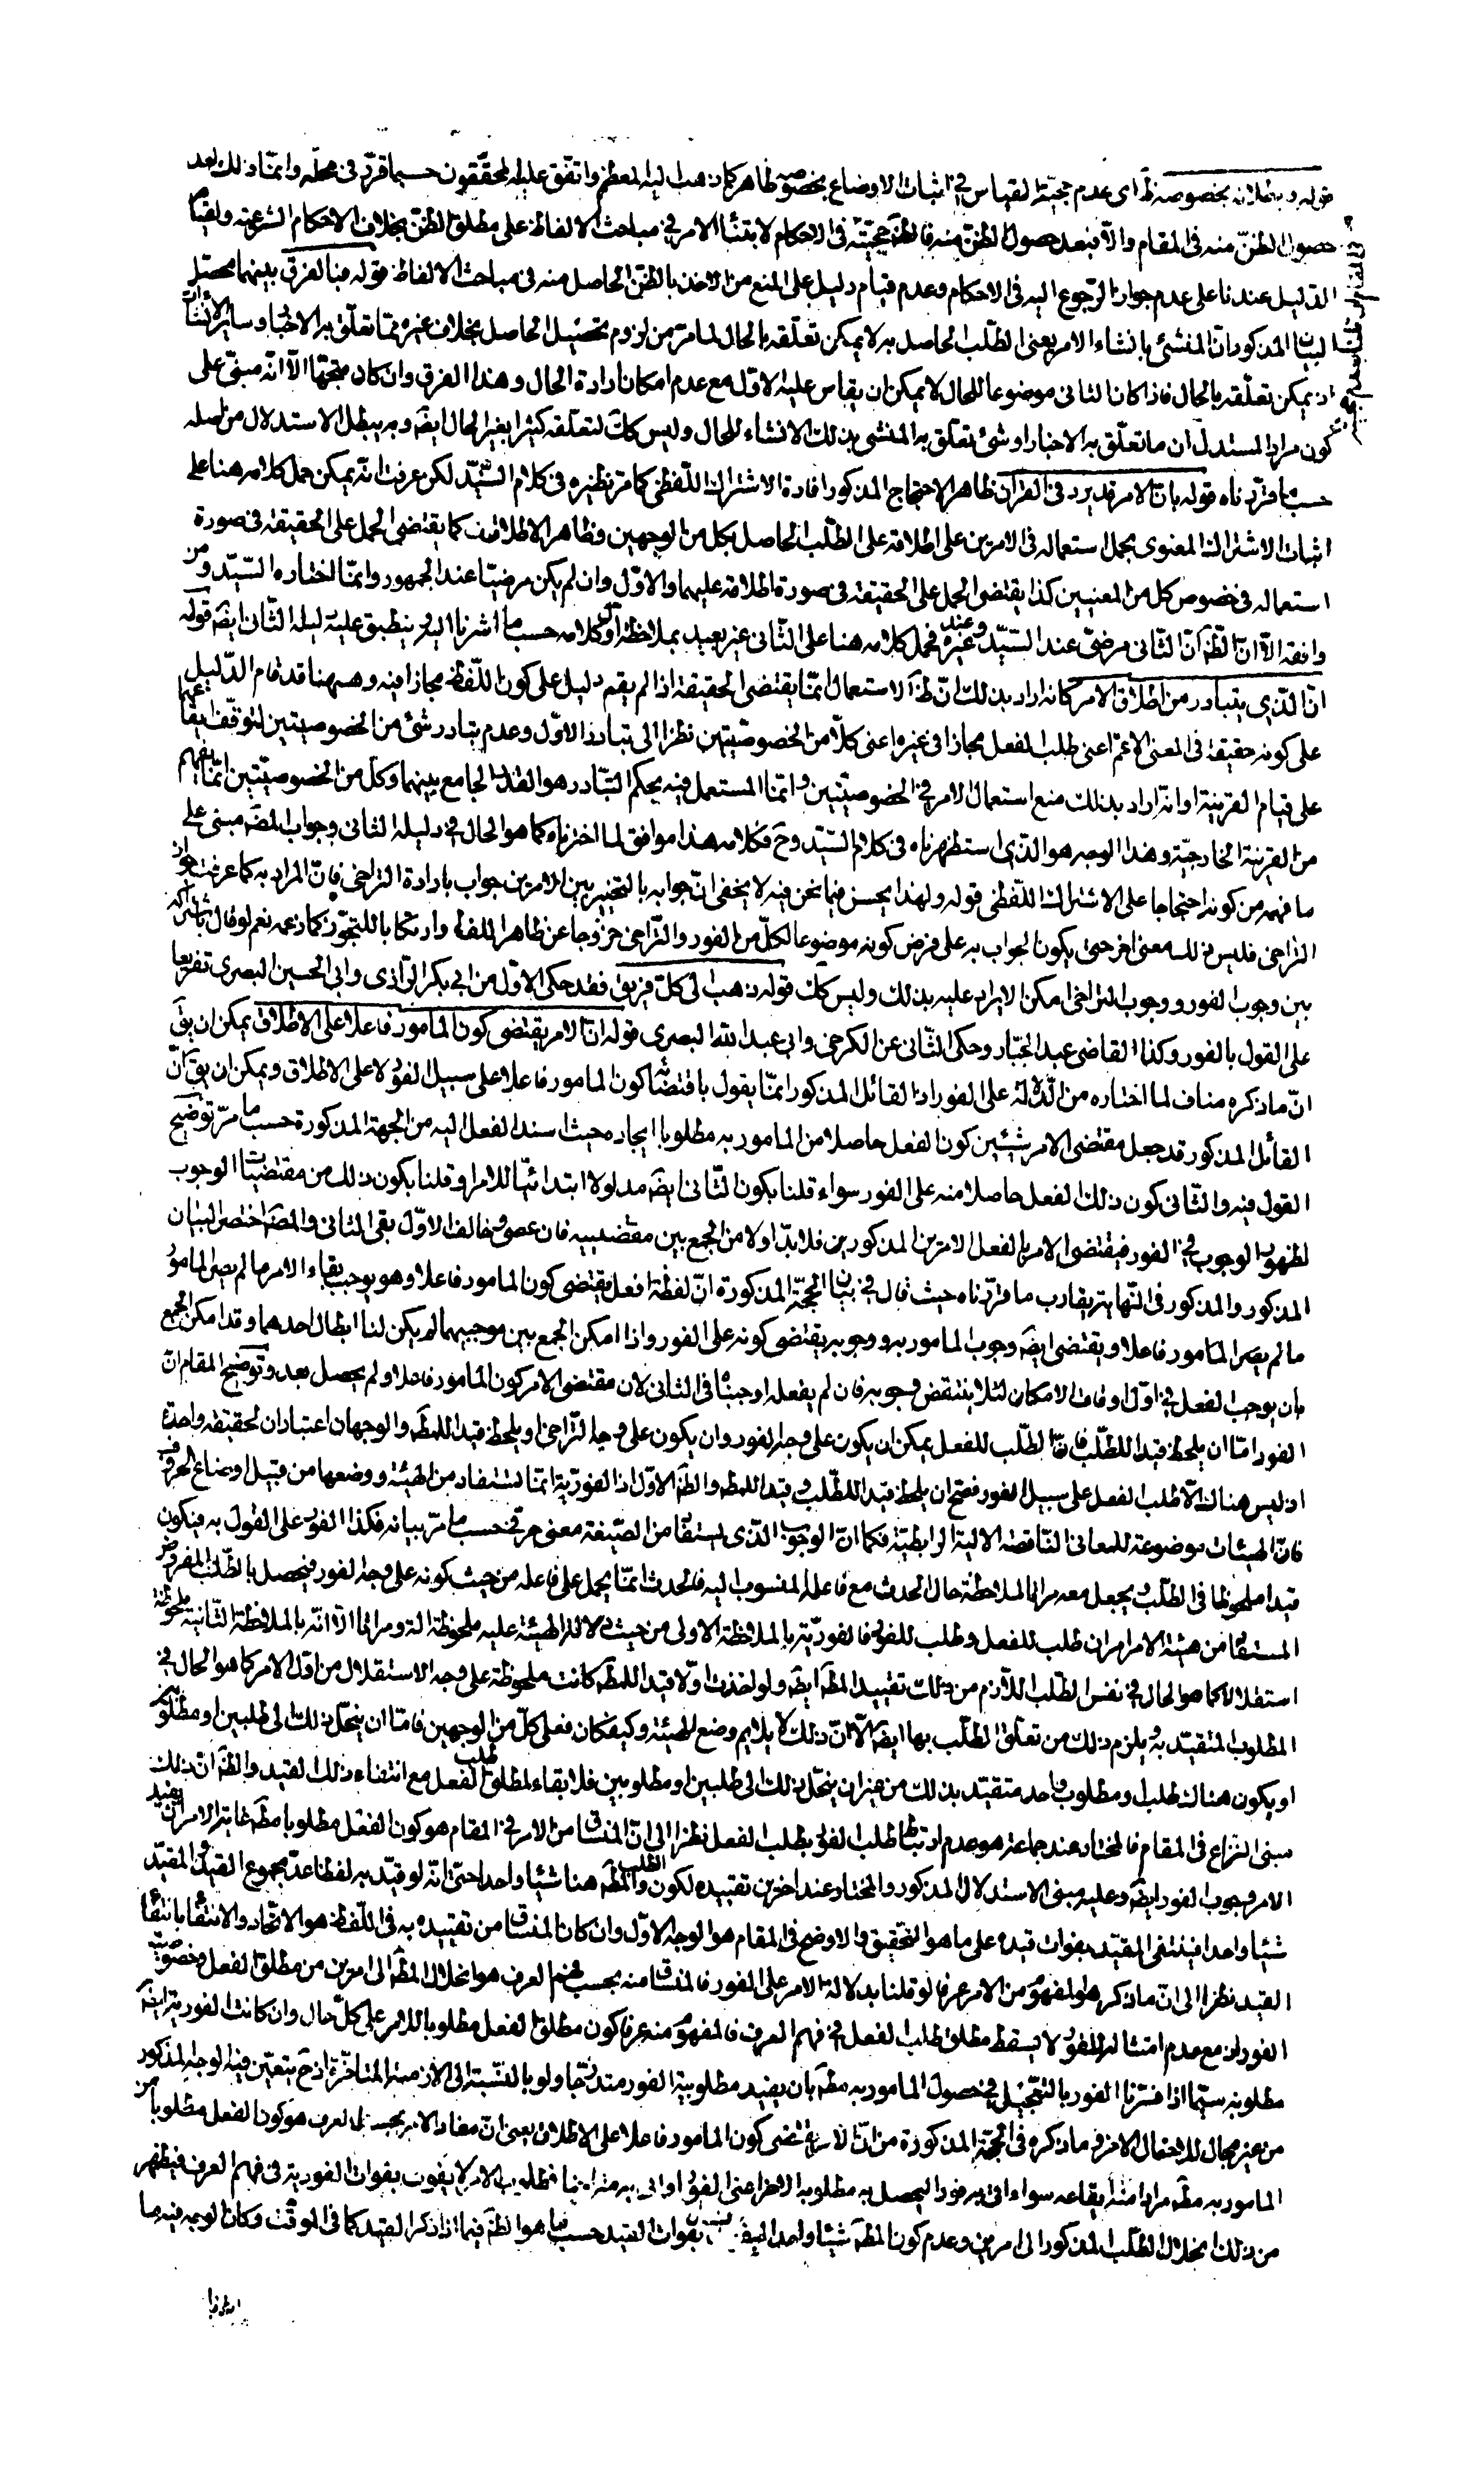 قوله وبطلانه بخصوصه ظ اى عدم حجيّة القياس فى اثبات الاوضاع بخصوصه ظاهر كما ذهب اليه المعظم واتّفق عليه المحقّقون حسبما قرّر فى محلّه وانمّا ذلك بعد
حصول الظنّ منه فى المقام والّا فبعد حصول الظنّ منه فالظّم حجيّته فى الاحكام لابتناء الامر فى مباحث الالفاظ على مطلق الظنّ بخلاف الاحكام الشرعيّه ولقيام
الدّليل عندنا على عدم جواز الرّجوع اليه فى الاحكام وعدم قيام دليل على المنع من الاخذ بالظنّ الحاصل منه فى مباحث الالفاظ قوله مبنا الفرق بينهما محصّل
البيان المذكور انّ المنشئ بانشاء الامر يعنى الطّلب الحاصل به لا يمكن تعلّقه بالحال لما مرّ من لزوم تحصيل الحاصل بخلاف غيره ممّا تعلّق به الاخبار وساير الانشاات
اذ يمكن تعلّقه بالحال فاذا كان الثانى موضوعا للحال لا يمكن ان يقاس عليه الاوّل مع عدم امكان ارادة الحال وهذا الفرق وان كان متّجها الّا انّه مبنىّ على
كون مراد المستدلّ ان ما تعلّق به الاخبار او شئ تعلّق به المنشى بذلك الانشاء للحال وليس كك لتعلّقه كثيرا بغير الحال ايضَ وبه يبطل الاستدلال من اصله
حسبما قرّرناه قوله بانّ الامر قد يرد فى القران ظاهر الاحتجاج المذكور افادة الاشتراك اللّفظى كما مرّ نظيره فى كلام السّيّد لكن عرفت انّه يمكن حمل كلامه هنا على
اثبات الاشتراك المعنوى بحمل استعماله فى الامرين على اطلاقه على الطّلب الحاصل بكل من الوجهين وظاهر الاطلاق كما يقتضى الحمل على الحقيقة فى صورة
استعماله فى خصوص كل من المعنيين كذا يقتضى الحمل على الحقيقة فى صورة اطلاقه عليهما والاوّل وان لم يكن مرضيّا عند الجمهور وانمّا اختاره السّيّد ومن
وافقه الّا انّ الظّم انّ الثّانى مرضىّ عند السّيّد وعند غيره فحمل كلامه هنا على الثّانى غير بعيد بملاحظة اوّل كلامه حسب ما اشرنا اليه وينطبق عليه دليله الثّانى ايضَ قوله
انّ الّذى يتبادر من اطلاق الامر كانه اراد بذلك انّ ظَم الاستعمال انمّا يقتضى الحقيقة اذا لم يقم دليل على كون اللّفظ مجازا فيه وهيهنا قد قام الدّليل
على كونه حقيقة فى المعنى الاعمّ اعنى طلب الفعل مجازا فى غيره اعنى كلّا من الخصوصيّتين نظرا الى تبادر الاوّل وعدم تبادر شئ من الخصوصيتين لتوقّف ايقاعهما
على قيام القرينة او انّه اراد بذلك منع استعمال الامر فى الخصوصيّتين وانمّا المستعمل فيه بحكم التّبادر هو القدر الجامع بينهما وكلّ من الخصوصيّتين انمّا يفهم
من القرينة الخارجيّة وهذا الوجه هو الّذى استظهرناه فى كلام السّيّد وحَ فكلامه هذا موافق لما اخترناه كما هو الحال فى دليله الثانى وجواب المصَ مبنى على
ما فهمه من كونه احتجاجا على الاشتراك اللّفظى قوله ولهذا يحسن فيما نحن فيه لا يخفى انّ جوابه بالتّخيير بين الامرين جواب بارادة التراخى فانّ المراد به كما عرفت جواز
التراخى فليس ذلك معنى اخر حتى يكون الجواب به على فرض كونه موضوعا لكلّ من الفور والتّراخى خروجا عن ظاهر اللفظ وارتكابا للتجوّز كما زعمه نعم لو قال باشتراكه
بين وجوب الفور ووجوب التراخى امكن الايراد عليه بذلك وليس كك قوله ذهب الى كلّ فريق فقد حكى الاوّل من ابى بكر الرّازى وابى الحسين البصرى تفريعا
على القول بالفور وكذا القاضى عبد الجبّار وحكى الثّانى عن الكرخى وابى عبد الله البصرى قوله انّ الامر يقتضى كون المامور فاعلا على الاطلاق يمكن ان يقَ
انّ ما ذكره مناف لما اختاره من الدّلالة على الفور اذ القائل المذكور انمّا يقول باقتضائه كون المامور فاعلا على سبيل الفور لا على الاطلاق ويمكن ان يقَ انّ
القائل المذكور قد جعل مقتضى الامر شيئين كون الفعل حاصلا من المامور به مطلوبا ايجاده حيث اسند الفعل اليه من الجهة المذكورة حسب ما مرّ توضيح
القول فيه والثّانى كون ذلك الفعل حاصلا منه على الفور سواء قلنا بكون الثّانى ايضَ مدلولا ابتدائيّا للامر او قلنا بكون ذلك من مقتضيات الوجوب
لظهور الوجوب فى الفور فيقتضى الامر بالفعل الامرين المذكورين فلا بدّ اولا من الجمع بين مقتضييه فان عصى وخالف الاوّل بقى الثانى والمصَ اختصر البيان
المذكور والمذكور فى النّهاية يقارب ما قرّرناه حيث قال فى بيان الحجّة المذكورة انّ لفظة افعل يقتضى كون المامور فاعلا وهو يوجب بقاء الامر ما لم يصر المامور
ما لم يصر المامور فاعلا ويقتضى ايضَ وجوب المامور به ووجوبه يقتضى كونه على الفور واذا امكن الجمع بين موجبيهما لم يكن لنا ابطال احدهما وقد امكن الجمع
بان يوجب الفعل فى اوّل اوقات الامكان لئلا ينتقض وجوبه فان لم يفعله اوجبناه فى الثانى لان مقتضى الامر كون المامور فاعلا ولم يحصل بعد وتوضيح المقام انّ
الفور امّا ان يلحظ قيدا للطّلب فانّ الطّلب للفعل يمكن ان يكون على وجه الفور وان يكون على وجه التّراخى او يلحظ قيدا للمطَ والوجهان اعتباران لحقيقة واحدة
اذ ليس هناك الّا طلب الفعل على سبيل الفور فصحّ ان يلحظ قيدا للطّلب وقيدا للمطَ والظّم الاوّل اذ الفوريّة انمّا تستفاد من الهيئة ووضعها من قبيل اوضاع الحروف
فانّ الهيئات موضوعة للمعانى النّاقصة الالية الرابطيّة فكما انّ الوجوب الّذى يستفاد من الصّيغة معنى حرفى حسب ما مرّ بيانه فكذا الفور على القول به فيكون
قيدا ملحوظا فى الطّلب ويجعل معه مراتا لملاحظة حال الحدث مع فاعله المنسوب اليه فالحدث انمّا يحمل على فاعله من حيث كونه على وجه الفور فيحصل بالطّلب المفروض
المستفاد من هيئة الامر امران طلب للفعل وطلب للفور فالفوريّة بالملاحظة الاولى من حيث دلالة الهيئة عليه ملحوظة الة ومراتا الّا انّه بالملاحظة الثّانية ملحوظة
استقلالا كما هو الحال فى نفس الطّلب اللّازم من ذلك تقييد المطَ ايضَ ولو اخذت اوّلا قيدا للمطَ كانت ملحوظة على وجه الاستقلال من اوّل الامر كما هو الحال فى
المطلوب المتقيّد به ويلزم ذلك من تعلّق الطّلب بها ايضَ الّا انّ ذلك لا يلايم وضع الهيئة وكيف كان فعلى كلّ من الوجهين فامّا ان ينحلّ ذلك الى طلبين او مطلوبين
او يكون هناك طلب ومطلوب واحد متقيّد بذلك من غير ان ينحلّ ذلك الى طلبين او مطلوبين فلا بقاء لمطلق طلب الفعل مع انتفاء ذلك القيد والظّم انّ ذلك
مبنى النّزاع فى المقام فالمختار عند جماعة هو عدم ارتباط طلب الفور بطلب الفعل نظرا الى انّ المنساق من الامر فى المقام هو كون الفعل مطلوبا مطَ غاية الامر ان يفيد
الامر وجوب الفور ايضَ وعليه مبنى الاستدلال المذكور والمختار عند اخرين تقييده لكون الطلب والمطَ هنا شيئا واحدا حتى انّه لو قيّد به لفظا عدّ مجموع القيد والمقيّد
شيئا واحدا فينتفى المقيّد بفوات قيده على ما هو التّحقيق والاوضح فى المقام هو الوجه الاوّل وان كان المنساق من تقييده به فى اللّفظ هو الاتّحاد والانتفاء بانتفاء
القيد نظرا الى انّ ما ذكر هو المفهوم من الامر عرفا لو قلنا بدلالة الامر على الفور فالمنساق منه بحسب فهم العرف هو انحلال المطَ الى امرين من مطلق الفعل وخصوصيّة
الفور وانّ مع عدم امتثاله للفور لا يسقط مطلق طلب الفعل فى فهم العرف فالمفهوم منه عرفا كون مطلق الفعل مطلوبا للامر على كلّ حال وان كانت الفورية ايضَ
مطلوبه سيّما اذا فسّرنا الفور بالتّعجيل فى حصول المامور به مطَ بان يفيد مطلوبية الفور متدرّجا ولو بالنّسبة الى الازمنة المتاخّرة اذ حَ يتعيّن فيه الوجه المذكور
من غير مجال للاحتمال الاخر فما ذكره فى الحجّة المذكورة من انّ الامر يقتضى كون المامور فاعلا على الاطلاق يعنى انّ مفاد الامر بحسب العرف هو كون الفعل مطلوبا من
المامور به مطَ مرادا منه ايقاعه سواء اتى به فورا ليحصل به مطلوبه الاخر اعنى الفور او اتى به متراخيا فمطلوب الامر لا يفوت بفوات الفورية فى فهم العرف فيظهر
من ذلك انحلال الطّلب المذكور الى امرين وعدم كون المطَ شيئا واحدا بفوات القيد حسب ما هو الظّم فيما اذا ذكر القيد كما فى الموقّت وكان الوجه فيه ما